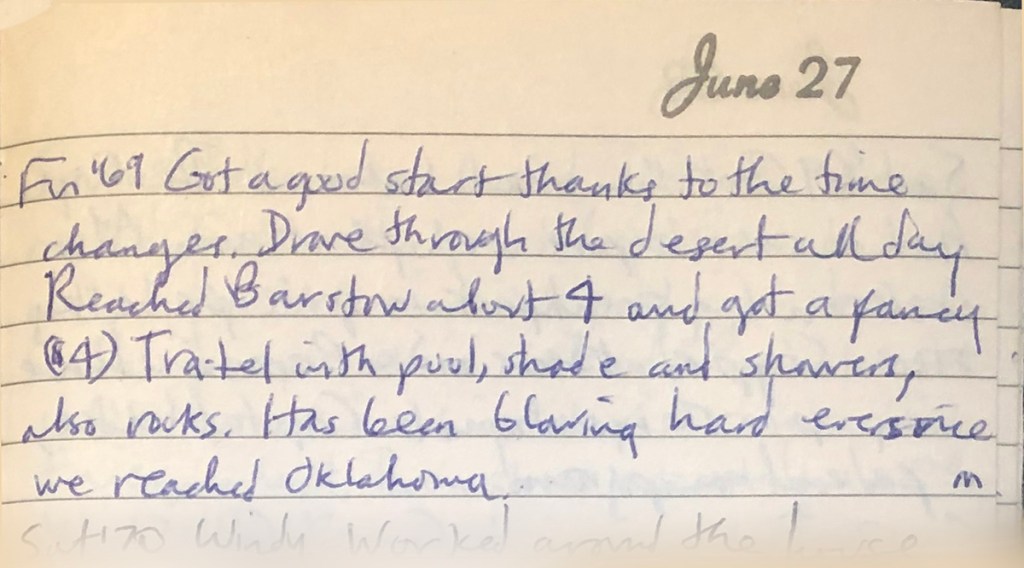 June 27
Fri '69 Got a good start thanks to the time
changes. Drove through the desert all day
Reached Barstow about 4 and got a fancy
($4) Tra-tel with pool, shade and showers,
also rocks. Has been blowing hard ever since
we reached Oklahoma. m
Sat '70 Windy Worked around the house